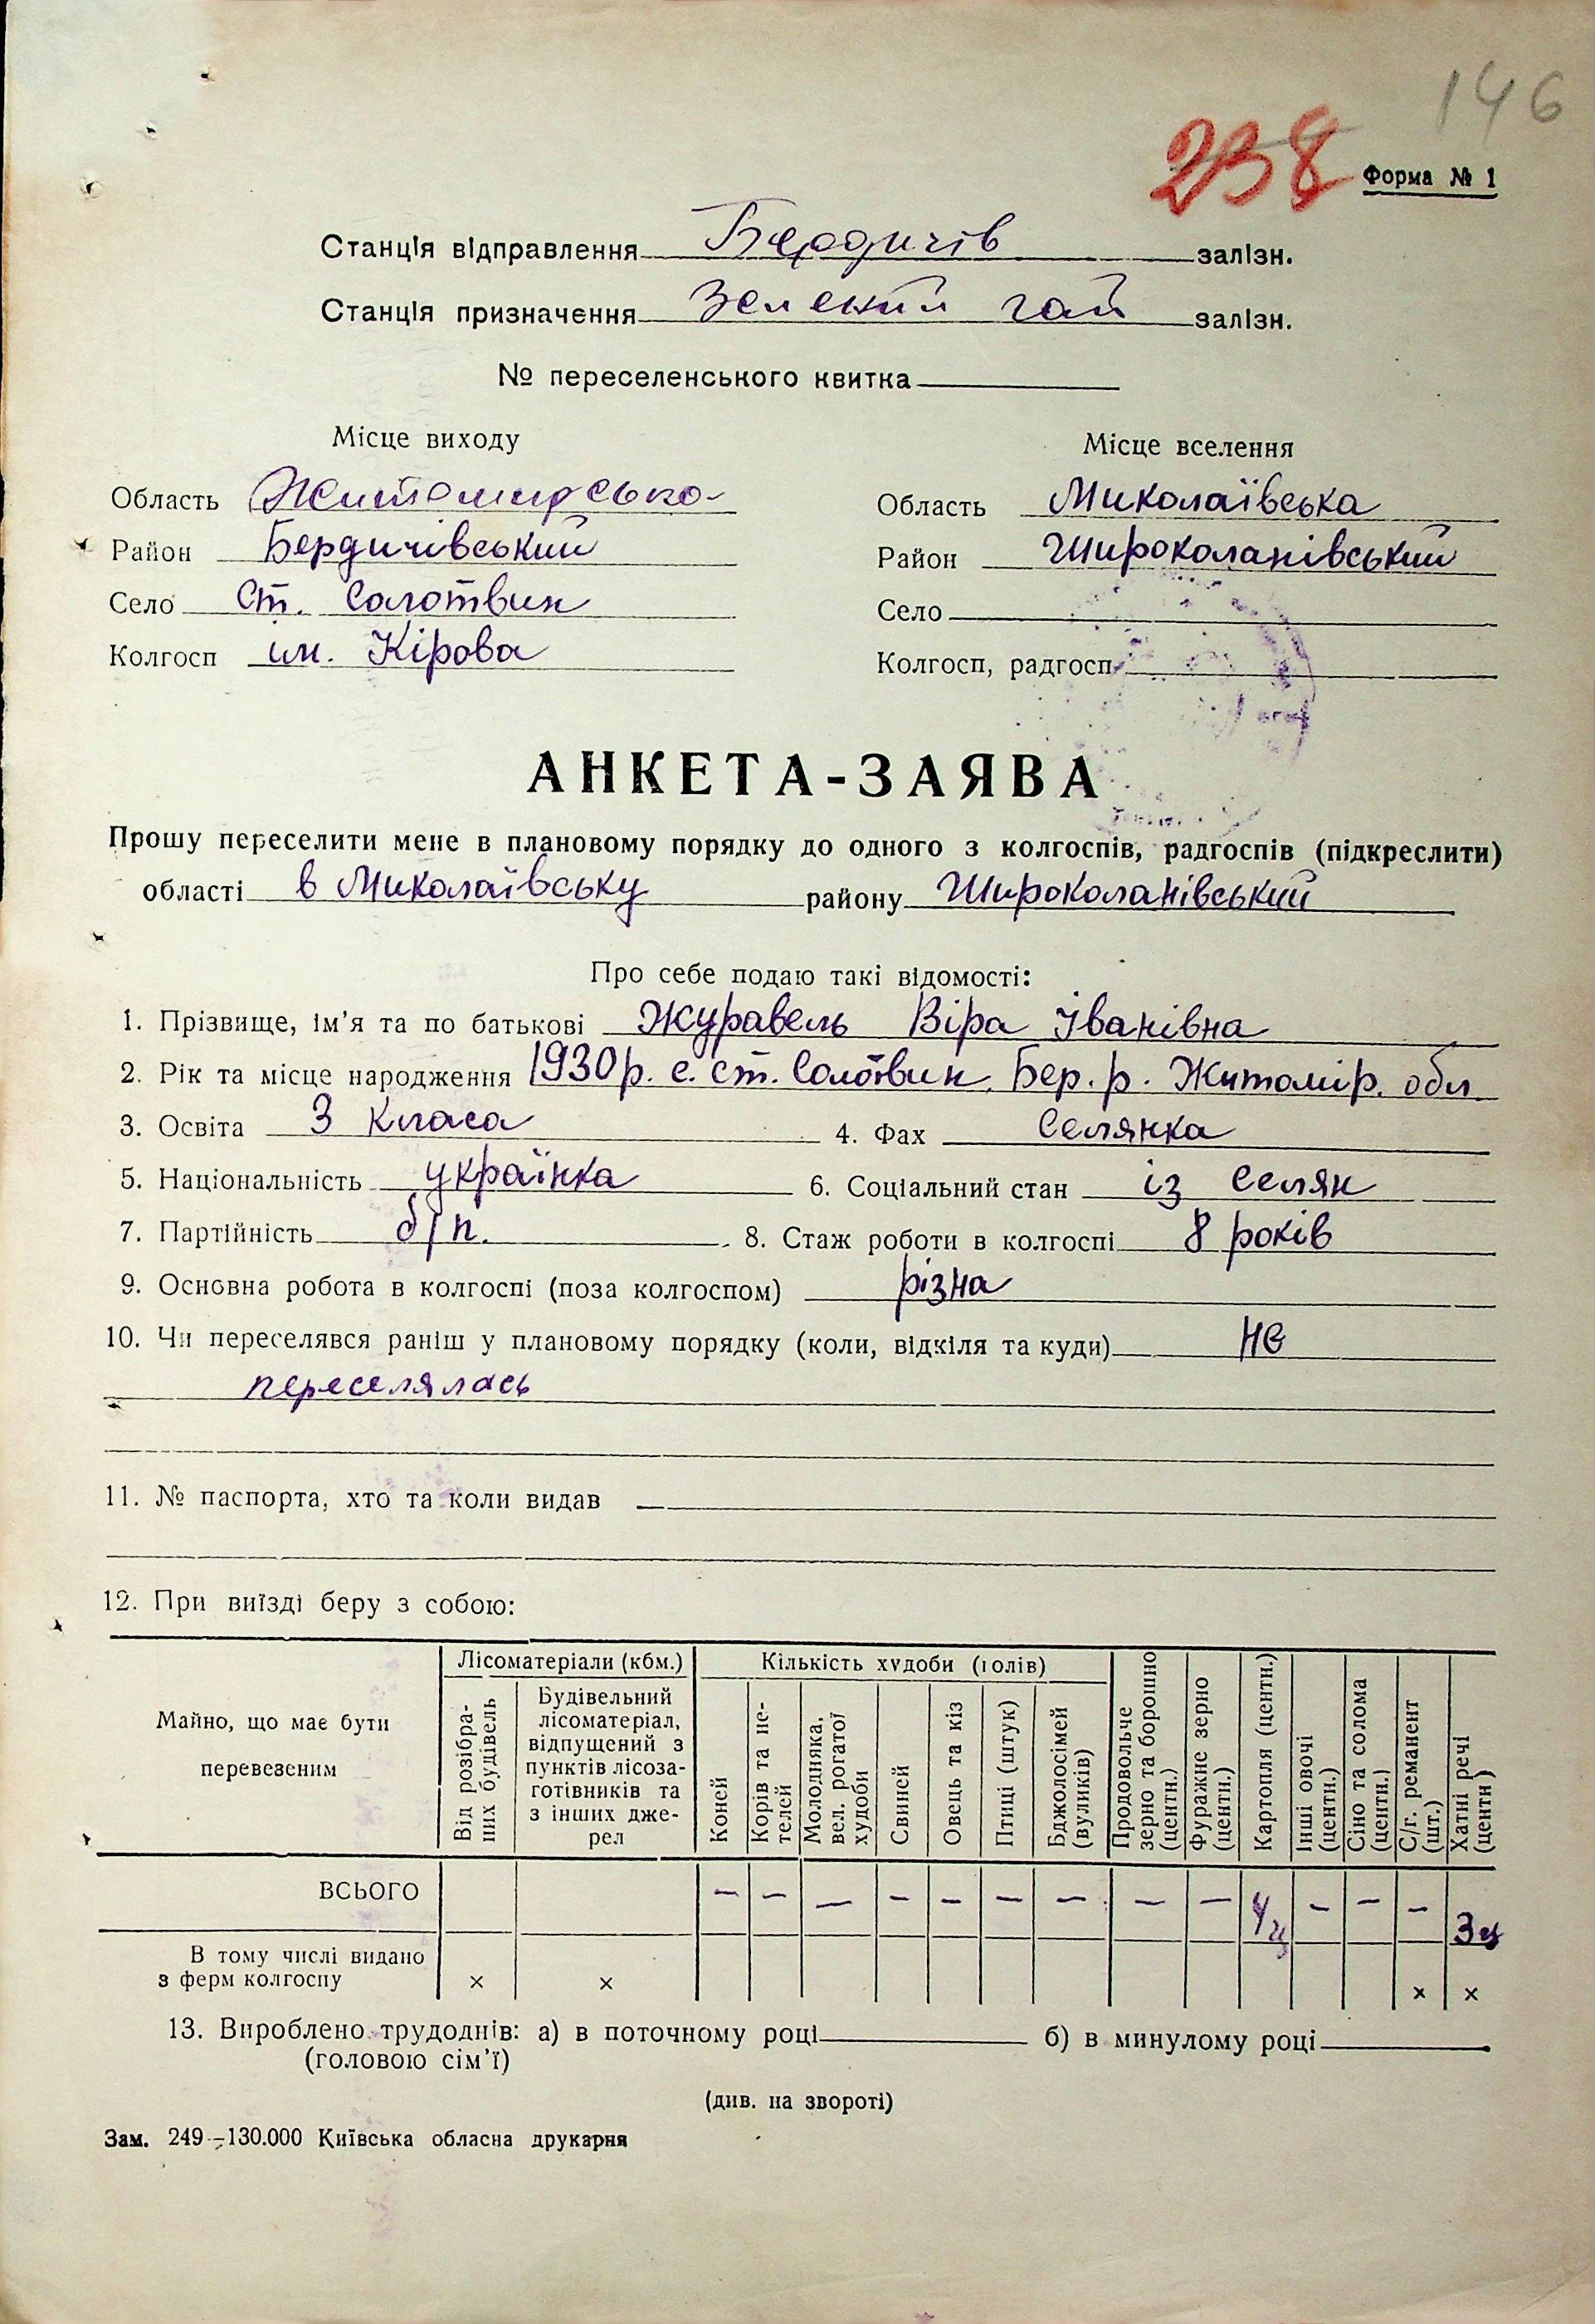 146
238
Форма № 1
Станція відправлення Бердичів залізн.
Станція призначення Зелений гай залізн.
№ переселенського квитка
Місце виходу
Місце вселення
Область Житомирсько-
Область Миколаївська
Район Бердичівський
Район Широколанівський
Село Ст. Солотвин
Село
Колгосп им. Кірова
Колгосп, радгосп
АНКЕТА-ЗАЯВА
Прошу переселити мене в плановому порядку до одного з колгоспів, радгоспів (підкреслити)
області в Миколаївську району Широколанівський
Про себе подаю такі відомості:
1. Прізвище, ім'я та по батькові Журавель Віра Іванівна
2. Рік та місце народження 1930 р. с. ст. Солотвин Бер. р. Житомір. обл
3. Освіта 3 класа 4. Фах селянка
5. Національність українка 6. Соціальний стан із селян
7. Партійність б/п. 8. Стаж роботи в колгоспі 8 років
9. Основна робота в колгоспі (поза колгоспом) різна
10. Чи переселявся раніш у плановому порядку (коли, відкіля та куди) не
переселялась
11. № паспорта, хто та коли видав —
12. При виїзді беру з собою:
Майно, що має бути перевезеним
Лісоматеріали (кбм.)
Від розібраних будівель
Будівельний лісоматеріал, відпущений з пунктів лісозаготівників та з інших джерел
Кількість худоби (голів)
Коней
Корів та нетелей
Молодняка, вел. рогатої худоби
Свиней
Овець та кіз
Птиці (штук)
Бджолосімей (вуликів)
Продовольче зерно та борошно (центн.)
Фуражне зерно (центн.)
Картопля (центн.)
Інші овочі (центн.)
Сіно та солома (центн.)
С/г. реманент (шт.)
Хатні речі (центн)
ВСЬОГО — — — — — — — — — 4ц — — — 3ц
В тому числі видано
з ферм колгоспу × × × ×
13. Вироблено трудоднів: а) в поточному році б) в минулому році
(головою сім'ї)
(див. на звороті)
Зам. 249–130.000 Київська обласна друкарня